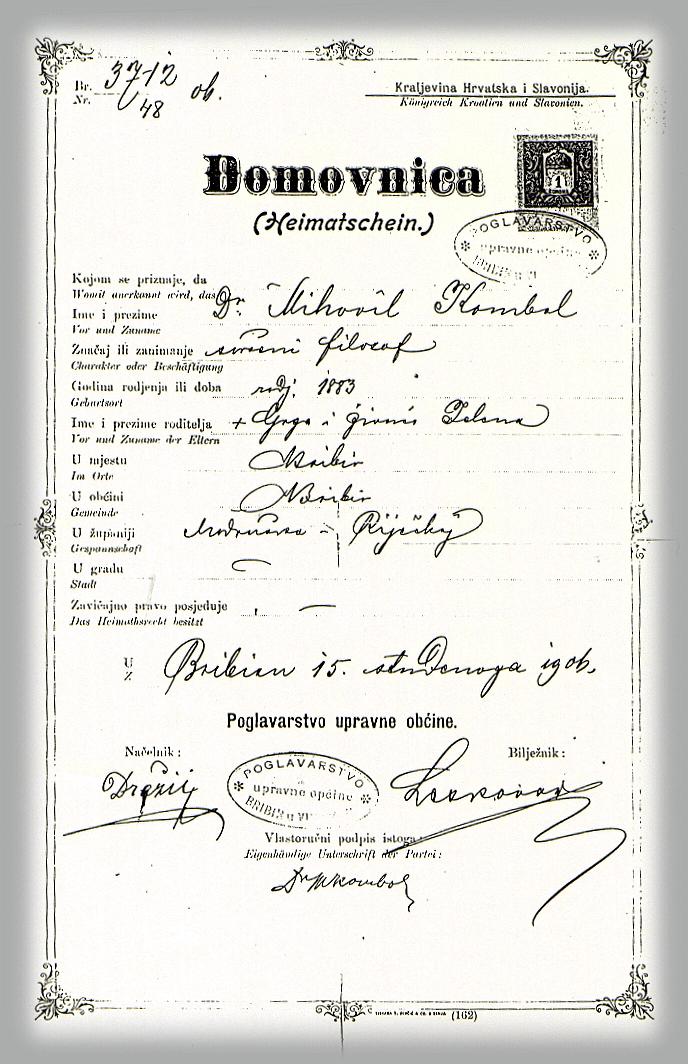 Br. 3712 ob.
Nr. 48
Kraljevina Hrvatska i Slavonija.
Königreich Kroatien und Slavonien.
Domovnica
(Heimatschein.)
1
POGLAVARSTVO
upravne općine
Kojom se priznaje, da
Womit anerkannt wird, das
Ime i prezime Dr. Mihovil Kombol
Vor und Zuname
Značaj ili zanimanje svršeni filozof
Charakter oder Beschäftigung
Godina rodjenja ili doba rodj. 1883
Geburtsort
Ime i prezime roditelja + Grga i Jelena
Vor und Zuname der Eltern
U mjestu Bribir
Im Orte
U obćini Bribir
Gemeinde
U županiji Modruška - Riječkoj
Gespannschaft
U gradu —
Stadt
Zavičajno pravo posjeduje —
Das Heimathsrecht besitzt
U Bribiru 15. studenoga 1906.
Z
Poglavarstvo upravne obćine.
Načelnik:
Bilježnik:
POGLAVARSTVO
upravne općine
BRIBIR u VI
Vlastoručni podpis istoga:
Eigenhändige Unterschrift der Partei:
Dr MKombol
(162)